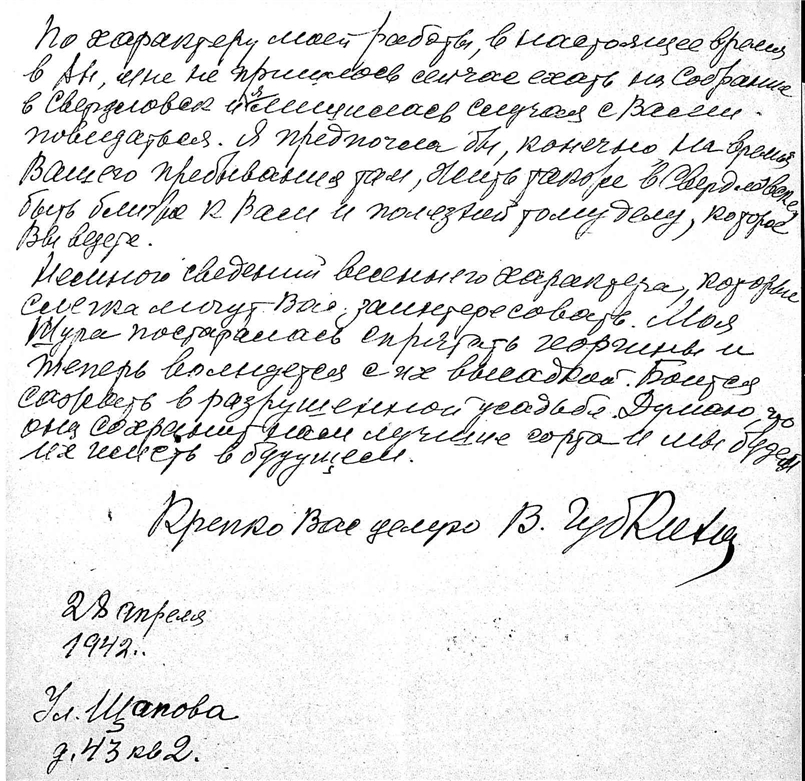 По характеру моей работы, в настоящее время
в Ан, мне не пришлось сейчас ехать на собрание
в Свердловск и я лишилась случая с Вами
повидаться. Я предпочла бы, конечно на время
Вашего пребывания там, жить также в Свердловске,
быть ближе к Вам и полезней тому делу, которое
Вы ведете.
Немного сведений весеннего характера, которые
слегка могут Вас заинтересовать. Моя
Шура постаралась спрятать георгины и
теперь волнуется с их высадкой. Боится
сажать в разрушенной усадьбе. Думаю, что
она сохранит нам лучшие сорта и мы будем
их иметь в будущем.
Крепко Вас целую В. Губкина
28 апреля
1942..
Ул. Щапова
д. 43 кв 2.